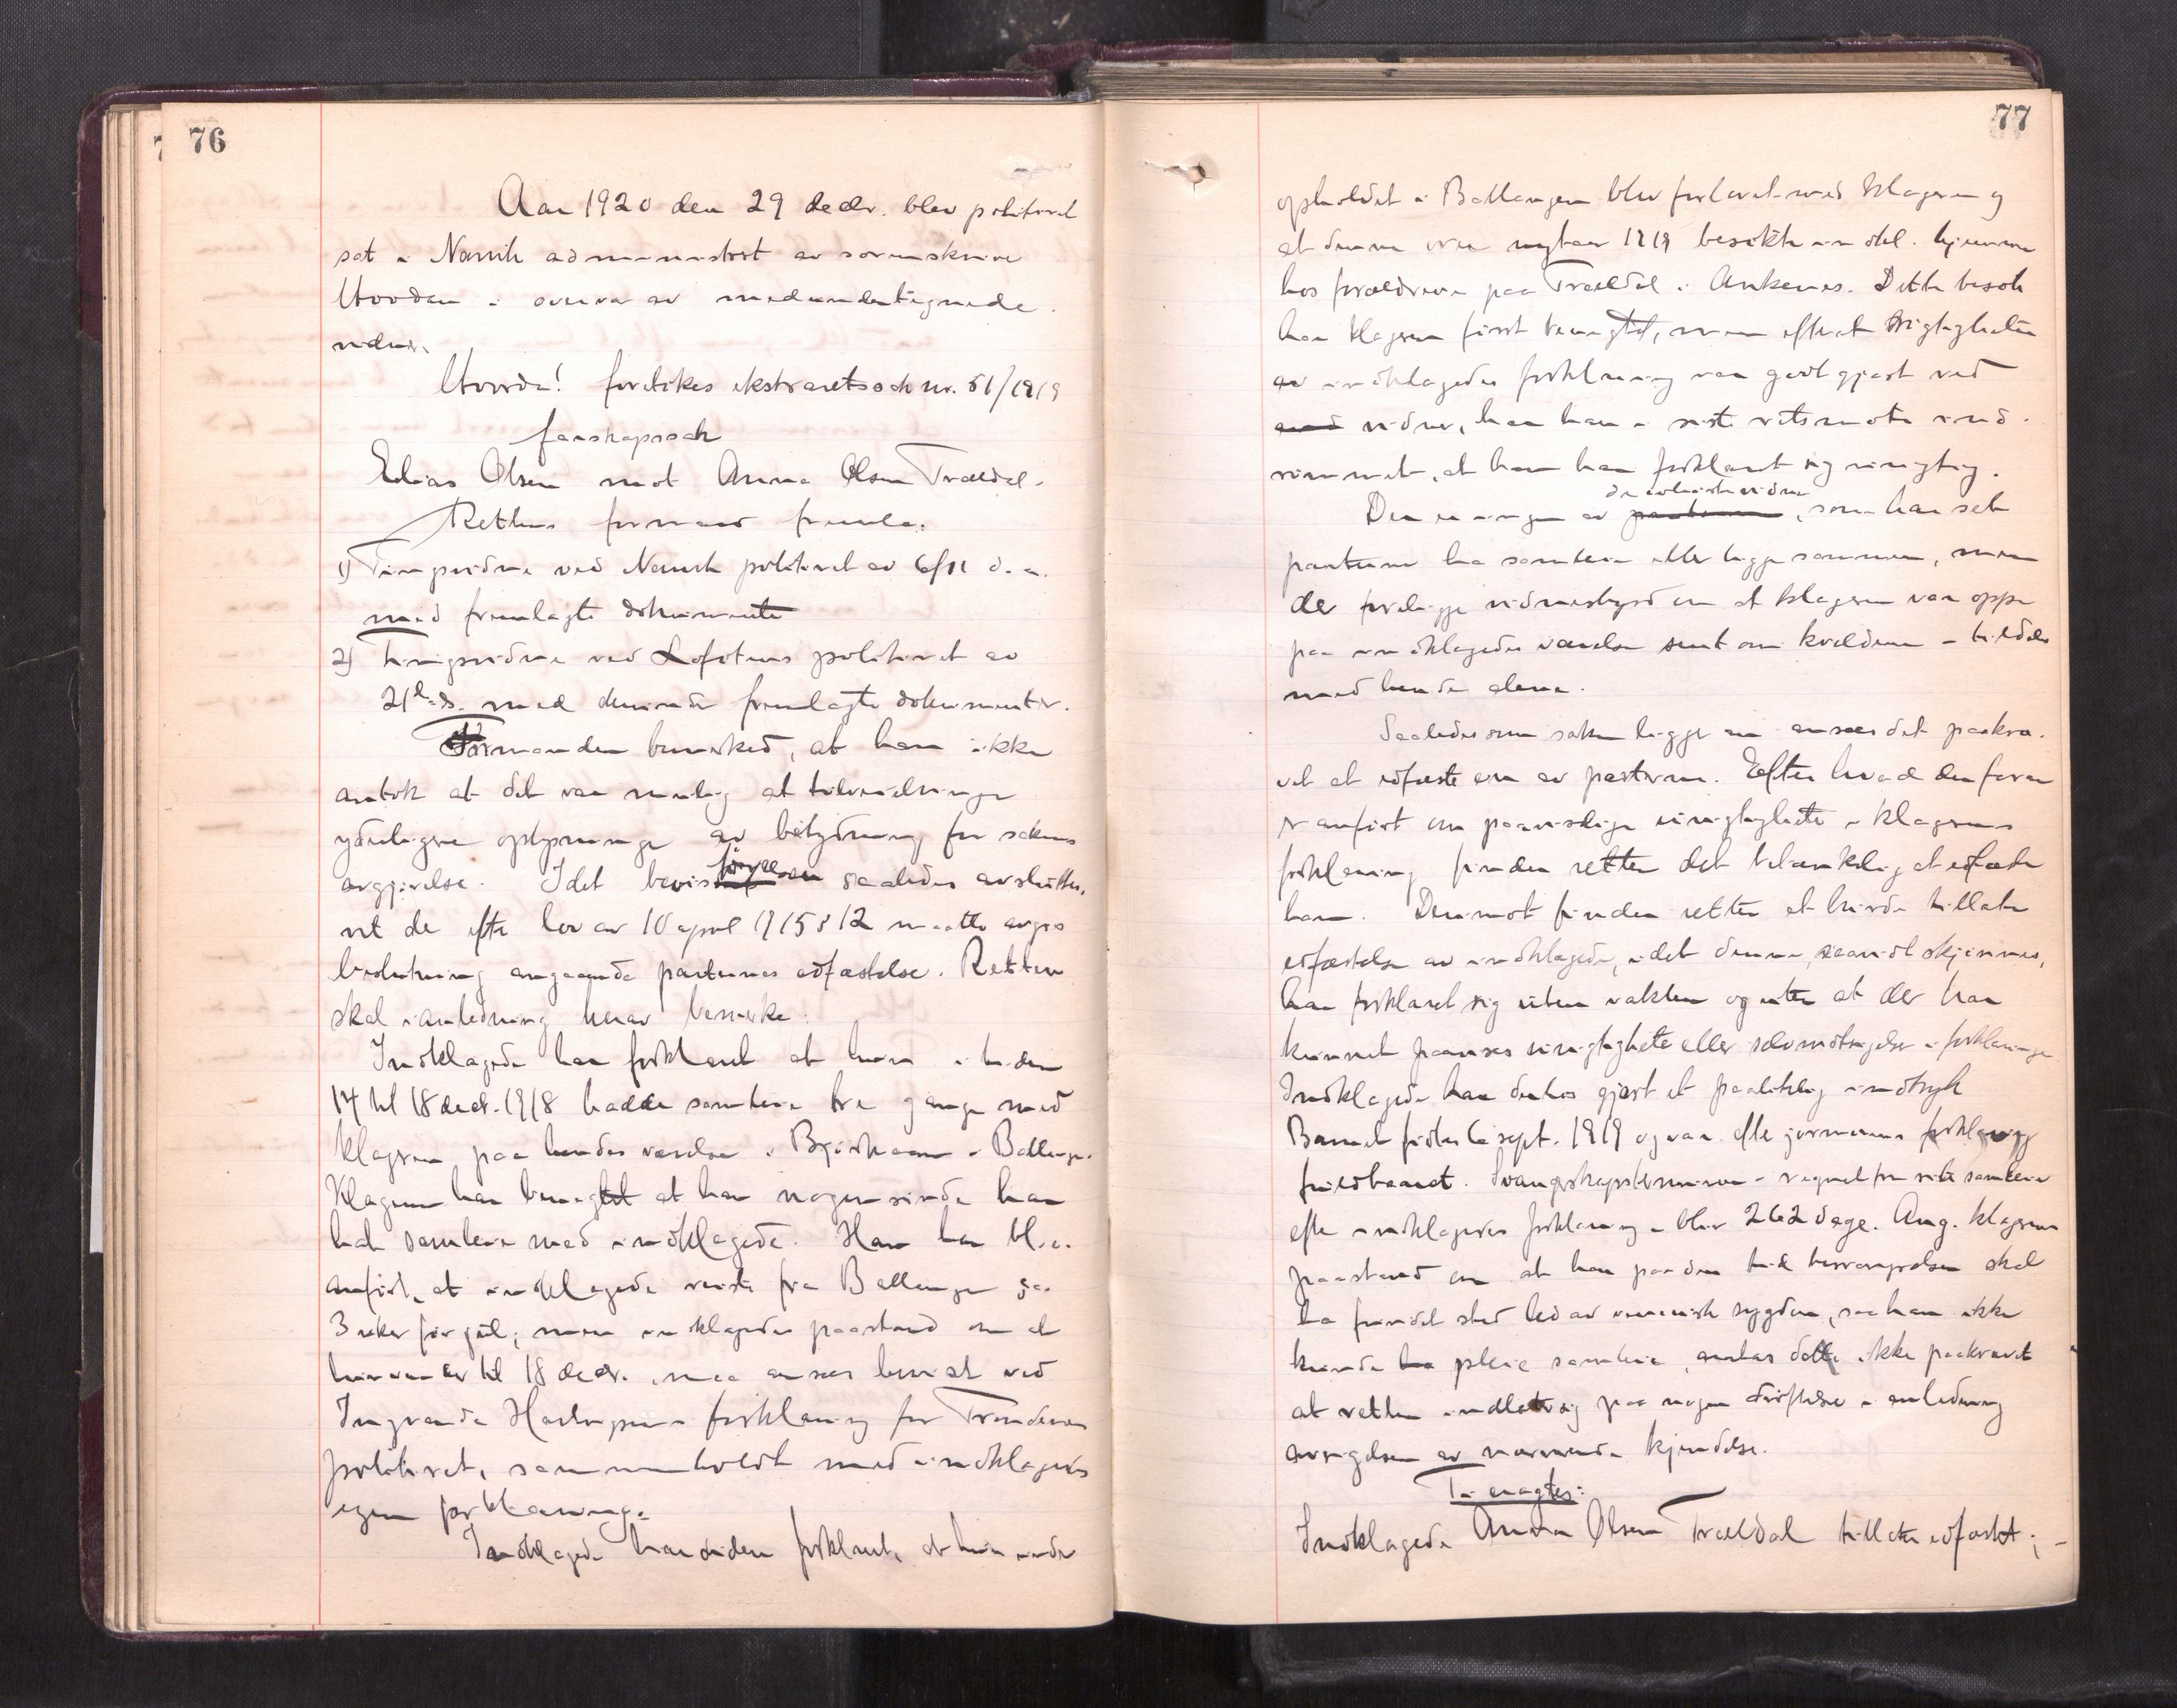 76
Aar 1920 den 29 decbr. blev politiret
sat i Narvik administrert av sorenskriver
i overvær av medundertegnede
vidner.
Hvorda! foretokes ekstraretssak nr. 51/1919
farskapssak
Edias Olsen mot Anna Olsen Trældal.
Rettens formand fremla:
1) Tingsvidne ved Narvik politiret av 6/11 d. a.
med fremlagte dokumenter
2) Tingsvidne ved Lofotens politiret av
21 ds. med derunder fremlagte dokumenter.
Formanden bemerked, at han ikke
antok at det var mulig at tilveiebringe
yderligere oplysninger av betydning for sakens
avgjørelse. Idet bevisførselen saaledes avsluttes,
vil der efter lov av 10 april 1915 § 12 maatte avgis
beslutning angaaende parternes edfæstelse. Retten
skal i anledning herav bemerke:
Indklagede har forklaret at hun i tiden
14 til 18 decbr. 1918 hadde samleie tre gange med
klageren paa hendes værelse i Bjørkaasen i Ballangen.
Klageren har benegtet at han nogensinde har
hat samleie med indklagede. Han har bl. a.
anført, at indklagede reiste fra Ballangen ca.
3 uker før jul; men indklagedes paastand om at
hun var der til 18 decbr. maa ansees bevist ved
forklaring for Trondenes
politiret, sammenholdt med indklagedes
egen forklaring.
Indklagede har videre forklart, at hun under
77
opholdet i Ballangen blev forlovet med klageren og
at denne over nytaar 1919 besøkte indkl. hjemme
hos forældrene paa Trældal i Ankenes. Dette besøk
har klageren først benegtet, men efterat rigtigheten
av indklagedes forklaring var godtgjort ved
med vidner, har han i siste retsmøte ind-
rømmet, at han har forklaret sig urigtig.
de avhørte vidner
Der er ingen av parterne, som har set
parterne ha samleie eller ligge sammen, men
der foreligger vidnesbyrd om at klageren var oppe
paa indklagedes værelse sent om kvelden – tildels
med hende alene.
Saaledes som saken ligger an ansees det paakræ-
vet at edfæste en av parterne. Efter hvad der foran
er anført om paaviselige urigtigheter i klagerens
forklaring finder retten det betænkelig at edfæste
ham. Derimot finder retten at burde tillate
edfæstelse av indklagede, idet denne, saavidt skjønnes,
har forklaret sig uten vaklen og uten at der har
kunnet paavises urigtigheter eller selvmotsigelser i forklaringen
Indklagede har derhos gjort et paalitelig indtryk
Barnet fødtes 6 sept. 1919 og var efter jormorens forklaring
fuldbaaret. Svangerskapsterminen – regnet fra siste samleie
efter indklagedes forklaring – blir 262 dage. Ang. klagerens
paastand om at han paa den tid besvangrelsen skal
ha fundet sted led av venerisk sygdom, saa han ikke
kunde ha pleie samleie, antas dette ikke paakrævet
at retten indlater sig paa nogen drøftelse i anledning
avsigelsen av nærværende kjendelse.
Ti eragtes:
Indklagede Anna Olsen Trældal tillates edfæstet; –